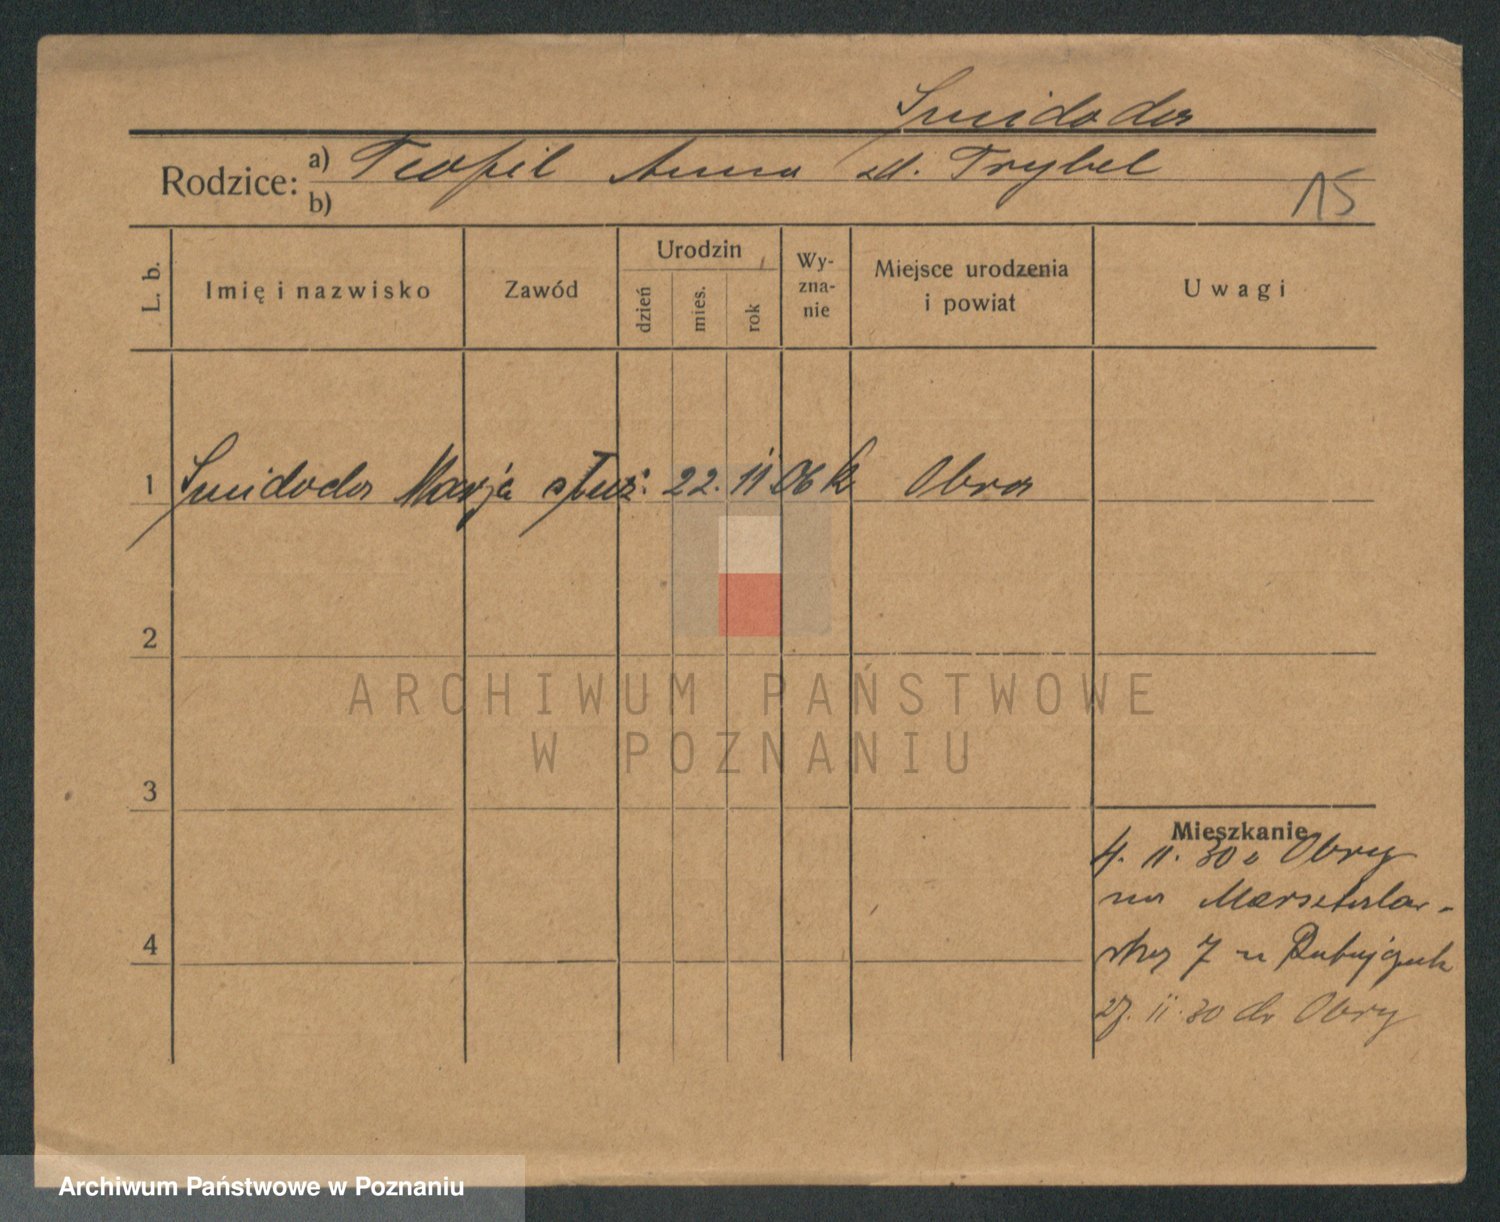 Smidoda
Rodzice: a) Teofil Anna zd. Trybel
b)
15
L. b.
Imię i nazwisko
Zawód
Urodzin
dzień
mies.
rok
Wy-
zna-
nie
Miejsce urodzenia
i powiat
Uwagi
1 Smidoda Marja służ. 22. 11 06 k Obra
2
3
4
Mieszkanie
4. 11. 30 z Obry
na
7 u
27. 11. 30 do Obry
ARCHIWUM PAŃSTWOWE
W POZNANIU
Archiwum Państwowe w Poznaniu